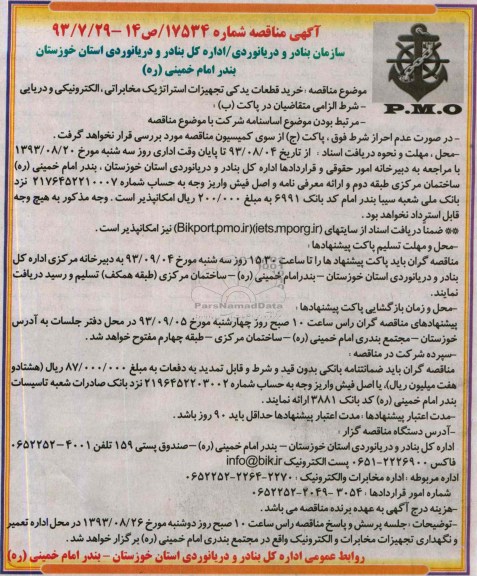 آگهی مناقصه شماره ۱۷۵۳۴/ص۱۴-۹۳/۷/۲۹
سازمان بنادر و دریانوردی/اداره کل بنادر و دریانوردی استان خوزستان
بندر امام خمینی (ره)
P.M.O
موضوع مناقصه : خرید قطعات یدکی تجهیزات استراتژیک مخابراتی، الکترونیکی و دریایی
- شرط الزامی متقاضیان در پاکت (ب) :
- مرتبط بودن موضوع اساسنامه شرکت با موضوع مناقصه
- در صورت عدم احراز شرط فوق ، پاکت (ج) از سوی کمیسیون مناقصه مورد بررسی قرار نخواهد گرفت .
-محل ، مهلت و نحوه دریافت اسناد : از تاریخ ۹۳/۰۸/۰۴ تا پایان وقت اداری روز سه شنبه مورخ ۱۳۹۳/۰۸/۲۰
با مراجعه به دبیرخانه امور حقوقی و قراردادها اداره کل بنادر و دریانوردی استان خوزستان ، بندر امام خمینی (ره)
ساختمان مرکزی طبقه دوم و ارائه معرفی نامه و اصل فیش واریز وجه به حساب شماره ۲۱۷۶۴۵۲۲۱۰۰۰۷ نزد
بانک ملی شعبه سیبا بندر امام کد بانک ۶۹۹۱ به مبلغ ۲۰۰/۰۰۰ ریال امکانپذیر است . وجه مذکور به هیچ وجه
قابل استرداد نخواهد بود .
** ضمناً دریافت اسناد از سایتهای (Bikport.pmo.ir)(iets.mporg.ir) نیز امکانپذیر است .
-محل و مهلت تسلیم پاکت پیشنهادها :
مناقصه گران باید پاکت پیشنهاد ها را تا ساعت ۱۵:۳۰ روز سه شنبه مورخ ۹۳/۰۹/۰۴ به دبیرخانه مرکزی اداره کل
بنادر و دریانوردی استان خوزستان – بندرامام خمینی (ره) – ساختمان مرکزی (طبقه همکف) تسلیم و رسید دریافت
نمایند.
ParsNamadData
-محل و زمان بازگشایی پاکت پیشنهادها :
پیشنهادهای مناقصه گران راس ساعت ۱۰ صبح روز چهارشنبه مورخ ۹۳/۰۹/۰۵ در محل دفتر جلسات به آدرس
خوزستان – مجتمع بندری امام خمینی (ره) – ساختمان مرکزی – طبقه چهارم مفتوح خواهد شد .
-سپرده شرکت در مناقصه :
مناقصه گران باید ضمانتنامه بانکی بدون قید و شرط و قابل تمدید به دفعات به مبلغ ۸۷/۰۰۰/۰۰۰ ریال (هشتادو
هفت میلیون ریال)، یا اصل فیش واریز وجه به حساب شماره ۲۱۹۶۴۵۲۲۰۳۰۰۲ نزد بانک صادرات شعبه تاسیسات
بندر امام خمینی (ره) کد بانک ۳۸۸۱ ارائه نمایند .
-مدت اعتبار پیشنهادها : مدت اعتبار پیشنهادها حداقل باید ۹۰ روز باشد .
-آدرس دستگاه مناقصه گزار :
اداره کل بنادر و دریانوردی استان خوزستان – بندر امام خمینی (ره) –صندوق پستی ۱۵۹ تلفن ۴۰۰۱-۰۶۵۲۲۵۲
فاکس ۲۲۲۶۹۰۰-۰۶۵۱ پست الکترونیک info@bik.ir
اداره مربوطه : اداره مخابرات والکترونیک : ۲۲۷۰-۲۲۶۴-۰۶۵۲۲۵۲
شماره امور قراردادها : ۳۰۵۴ -۴۰۴۹-۰۶۵۲۲۵۲
-هزینه درج آگهی به عهده برنده مناقصه می باشد .
-توضیحات : جلسه پرسش و پاسخ مناقصه راس ساعت ۱۰ صبح روز دوشنبه مورخ ۱۳۹۳/۰۸/۲۶ در محل اداره تعمیر
و نگهداری تجهیزات مخابرات و الکترونیک واقع در مجتمع بندری امام خمینی (ره) برگزار خواهد شد .
روابط عمومی اداره کل بنادر و دریانوردی استان خوزستان – بندر امام خمینی (ره)